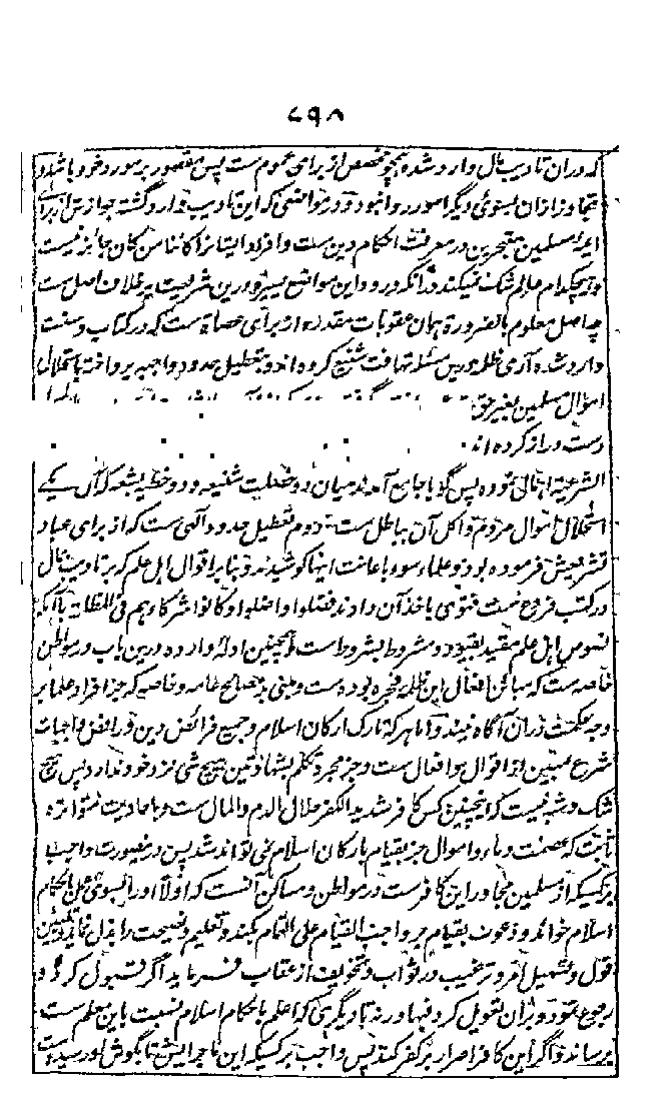 ۴۹۸
که دران تادیب بمال وارد شده همچو مخصص از برای عموم ست پس مقصور بر مورد خود باشد و
تجاوز ازان بسوی دیگر امور روا نبود و در مواضعی که این تادیب وارد گشته جوازش از برای
ایمه مسلمین متبحرین در معرفت احکام دین ست و افراد ایشانرا کائنا من کان جائز نیست
و هیچکدام عالم شک نمیکند در آنکه ورود این مواضع یسیره درین شریعت بر خلاف اصل ست
چه اصل معلوم بالضرورة همان عقوبات مقدره از برای عصاة ست که در کتاب و سنت
وارد شده آری ظلمه درین مسئله تهافت شنیع کرده اند و بتعطیل حدود واجبه پرداخته باستحلال
اموال مسلمین بغیر حق
دست دراز کرده اند
الشرعیة پس گویا جامع آمدند میان دو خصلت شنیعه و دو خطیئه بشعه که آن یکی
استحلال اموال مردم و اکل آن بباطل ست دوم تعطیل حدود آلهی ست که از برای عباد
تشریعش فرموده بود و علماء سوء باعانت اینها کوشیدند و بنا بر اقوال اهل علم که بر تادیب بمال
در کتب فروع ست فتوی باخذ آن دادند فضلوا و اضلوا و کانوا شرکاءهم فی الظلمات با آنکه
نصوص اهل علم مقید بقیود و مشروط بشروط ست همچنین ادلهٔ وارده درین باب در مواطن
خاصه ست که مباین افعال این ظلمه فجره بوده ست و مبنی بر مصالح عامه و خاصه که جز افراد علما بر
وجه حکمت دران آگاه نیند و اما هر که تارک ارکان اسلام و جمیع فرائض دین و رافض واجبات
شرع مبین از اقوال و افعال ست و جز مجرد تکلم بشهادتین هیچ شی نزد خود ندارد پس هیچ
شک و شبه نیست که اینچنین کس کافر شدید الکفر حلال الدم و المال ست و باحادیث متواتره
ثابت که عصمت دماء و اموال جز بقیام بارکان اسلام نمی تواند شد پس درینصورت واجب
بر کسیکه از مسلمین مجاور این کافر ست در مواطن و مساکن آنست که اولا او را بسوی عمل باحکام
اسلام خواند و دعوت بقیام بر واجب القیام علی التمام کند و تعلیم و نصیحت را بذل نماید و تلیین
قول و تسهیل امر و ترغیب در ثواب و تخویف از عقاب فرماید اگر قبول کرد و
رجوع نمود و بران تعویل کرد فبها ورنه تا دیگری که اعلم باحکام اسلام نسبت باین معلم ست
برساند و اگر این کافر اصرار بر کفر کند پس واجب بر کسیکه این ماجرایش تا بگوش او رسیده است